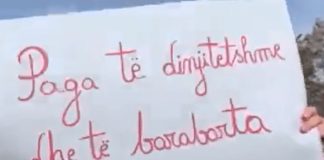 Paga të dinjitetshme
dhe të barabarta